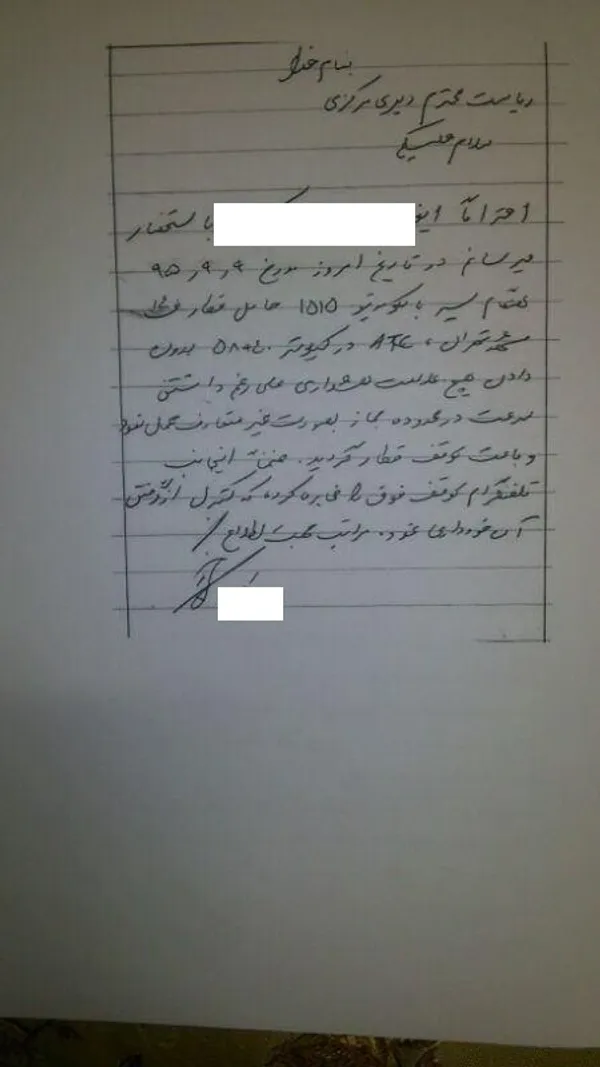 بنام خدا
ریاست محترم دیزی مرکزی
سلام علیکم
احتراماً این باستحضار
میرساند در تاریخ امروز مورخ ۹۵٫۹٫۹
هنگام سیر با لکوموتیو ۱۵۱۵ حامل قطار
مشهد تهران، ATC در کیلومتر ۵۸۰ بدون
دادن هیچ علامت هشداری علی رغم داشتن
سرعت در محدوده مجاز بصورت غیر متعارف عمل نمود
و باعث توقف قطار گردید. ضمناً اینجانب
تلفنگرام توقف فوق را مخابره کرده که کنترل از گرفتن
آن خودداری نمود. مراتب جهت اطلاع